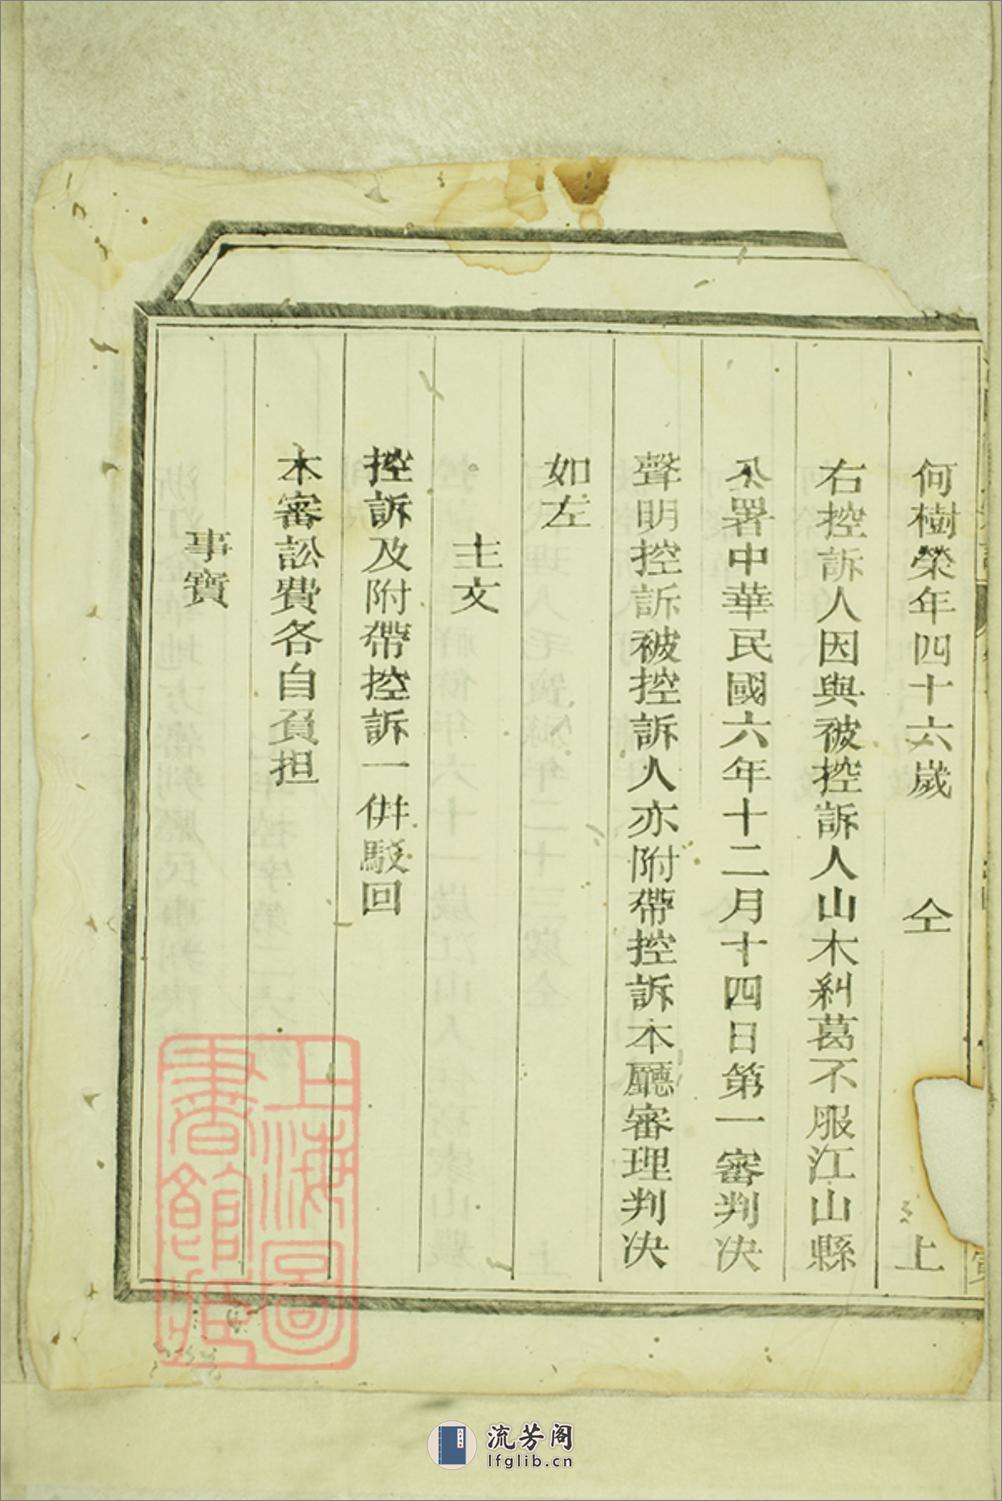 何樹榮年四十六歲　仝　上
右控訴人因與被控訴人山木糾葛不服江山縣
公署中華民國六年十二月十四日第一審判决
聲明控訴被控訴人亦附帶控訴本廳審理判决
如左
主文
控訴及附帶控訴一併駁回
本審訟費各自負担
事實
上海圖
書館藏
流芳阁
lfglib.cn